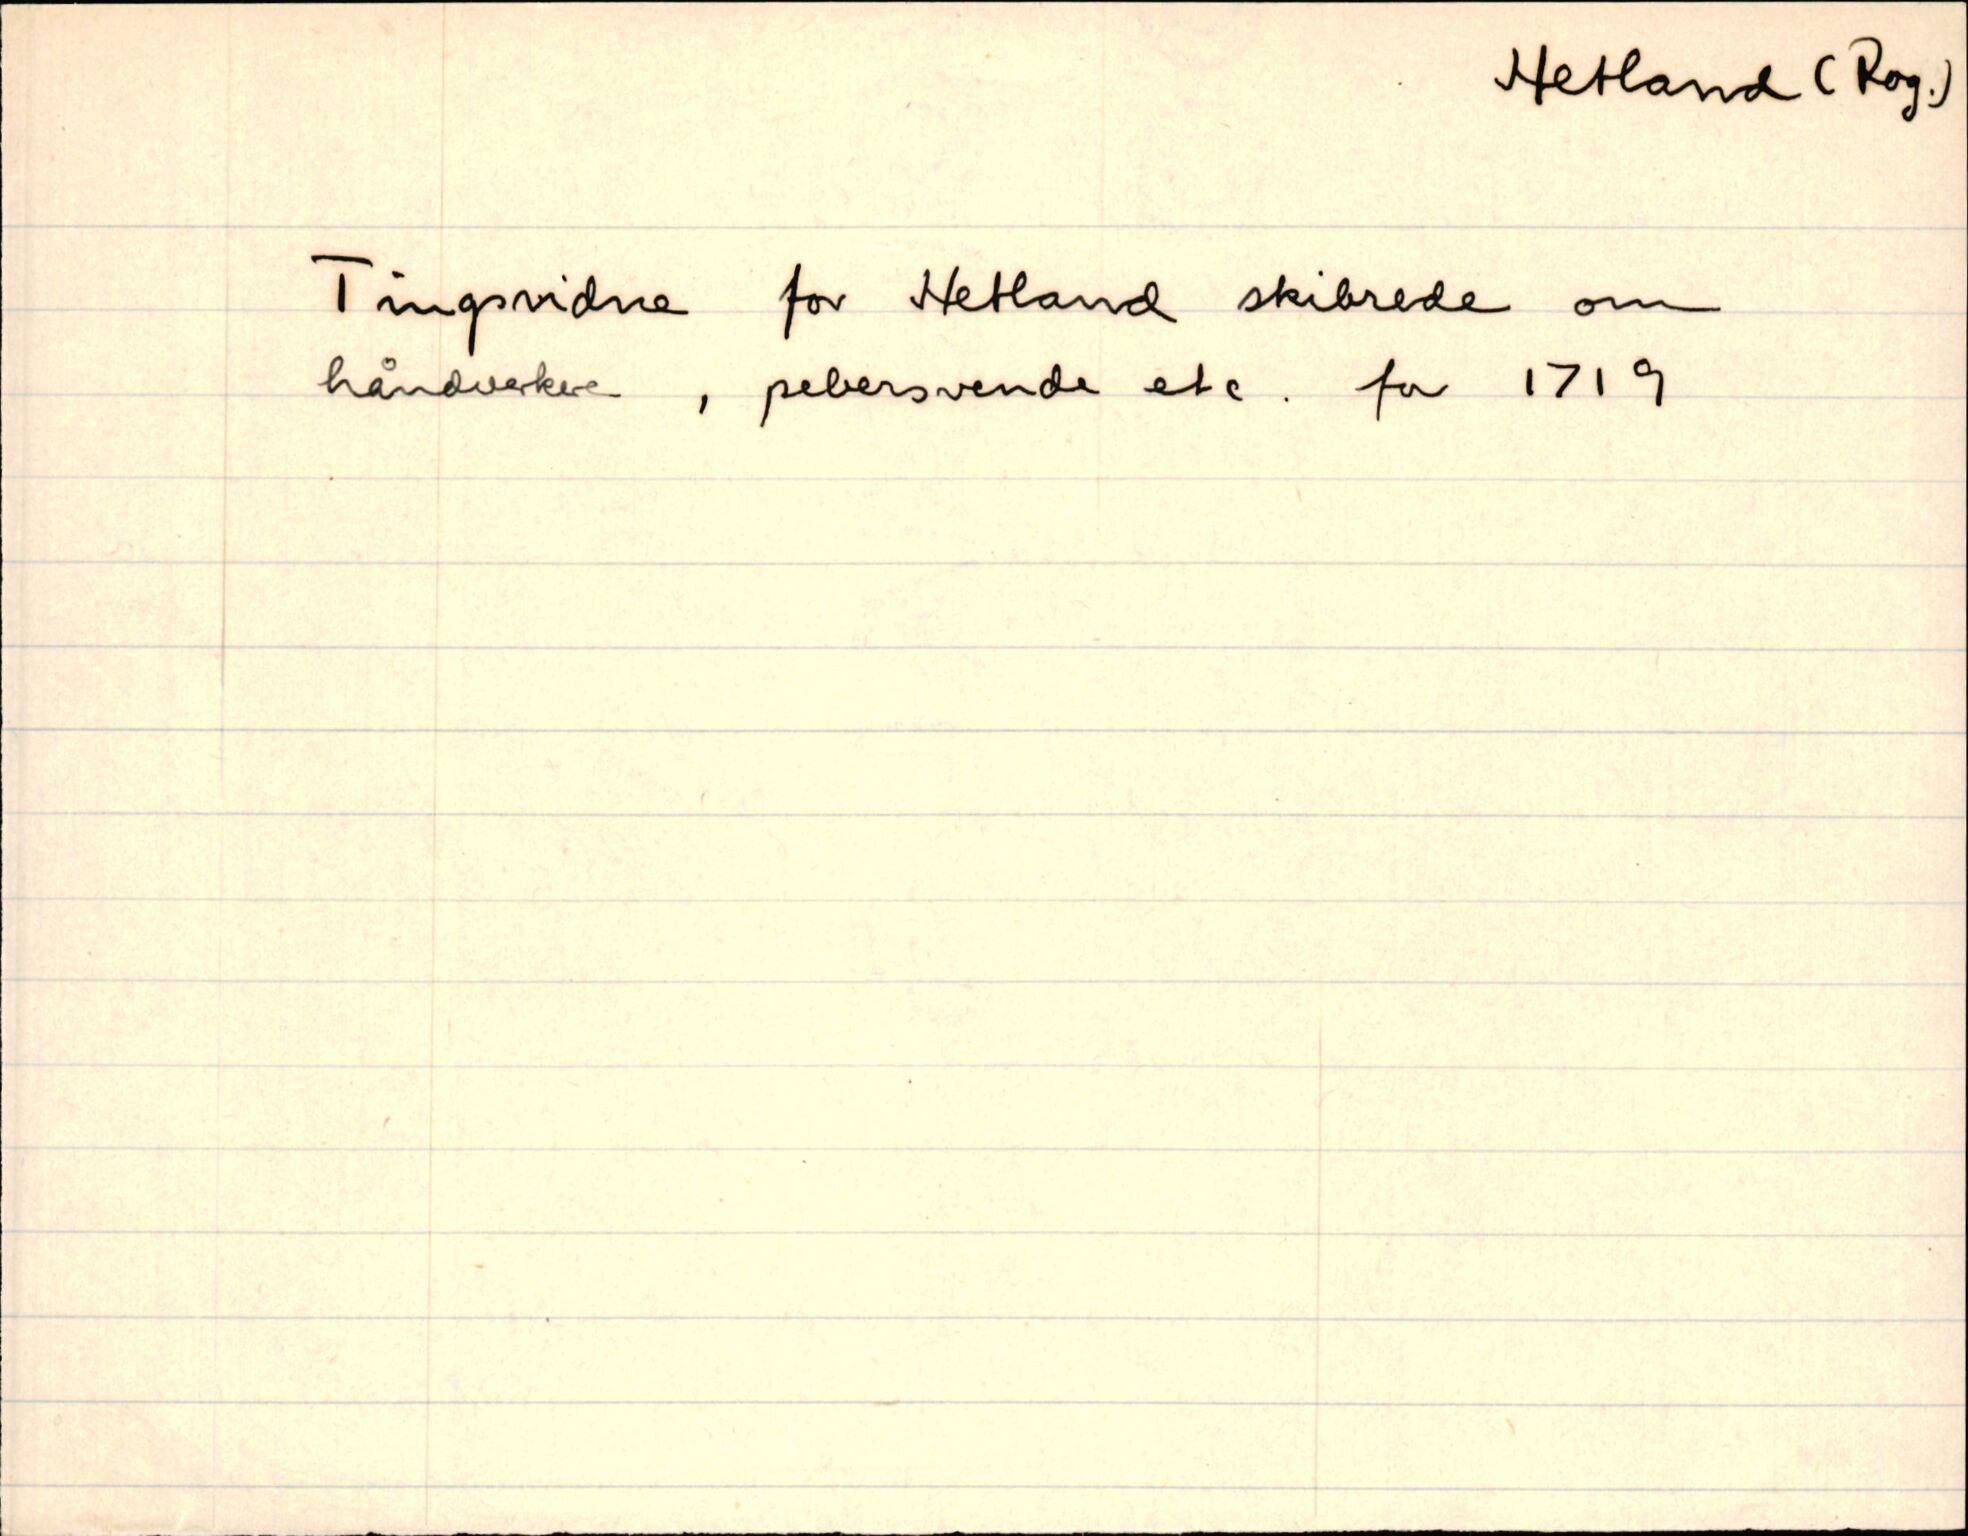 Hetland (Rog.)
Tingsvidne for Hetland skibrede om
håndverkere, pebersvende etc. for 1719